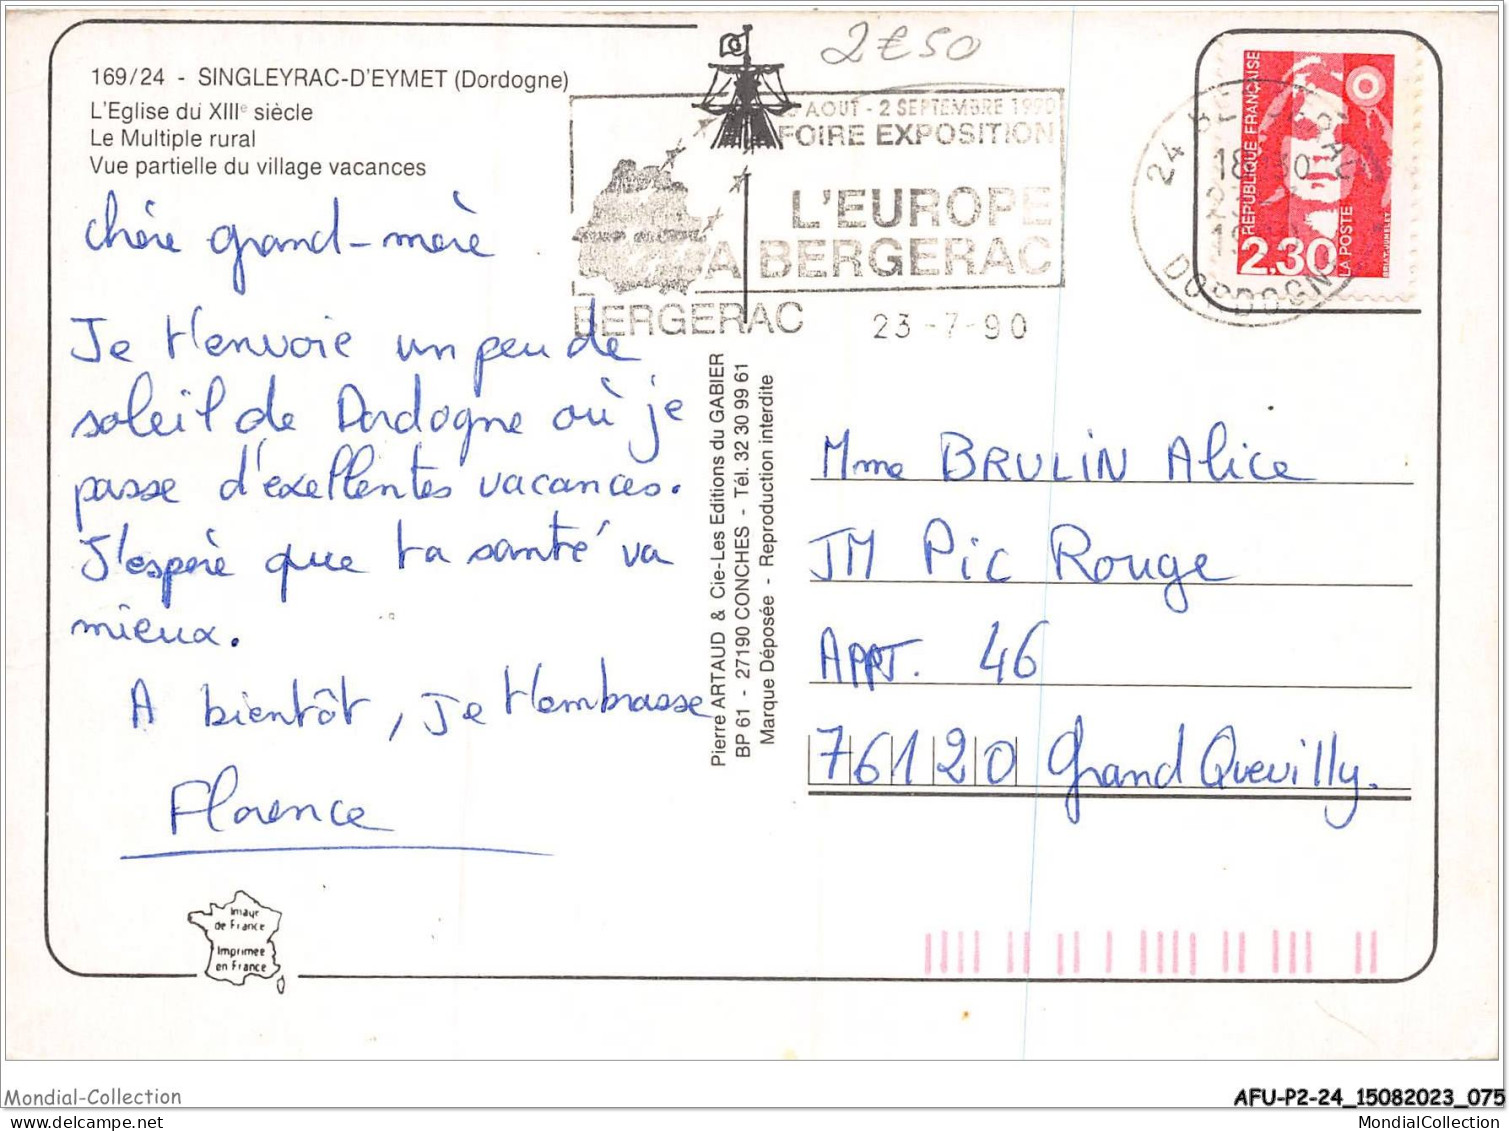 169/24 - SINGLEYRAC-D'EYMET (Dordogne)
L'Eglise du XIIIe siècle
Le Multiple rural
Vue partielle du village vacances
2€50
AOUT - 2 SEPTEMBRE 1990
FOIRE EXPOSITION
L'EUROPE
A BERGERAC
BERGERAC
23-7-90
24 BERGERAC
DORDOGNE
RÉPUBLIQUE FRANÇAISE
2.30
LA POSTE
chère grand-mère
Je t'envoie un peu de
soleil de Dordogne où je
passe d'exellentes vacances.
J'espère que ta santé va
mieux.
A bientôt, je t'embrasse
Florence
Pierre ARTAUD & Cie-Les Editions du GABIER
BP 61 - 27190 CONCHES - Tél. 32 30 99 61
Marque Déposée - Reproduction interdite
Mme BRULIN Alice
JM Pic Rouge
APPT. 46
76120 Grand Quevilly.
Image
de France
Imprimée
en France
Mondial-Collection
AFU-P2-24_15082023_075
MondialCollection.com